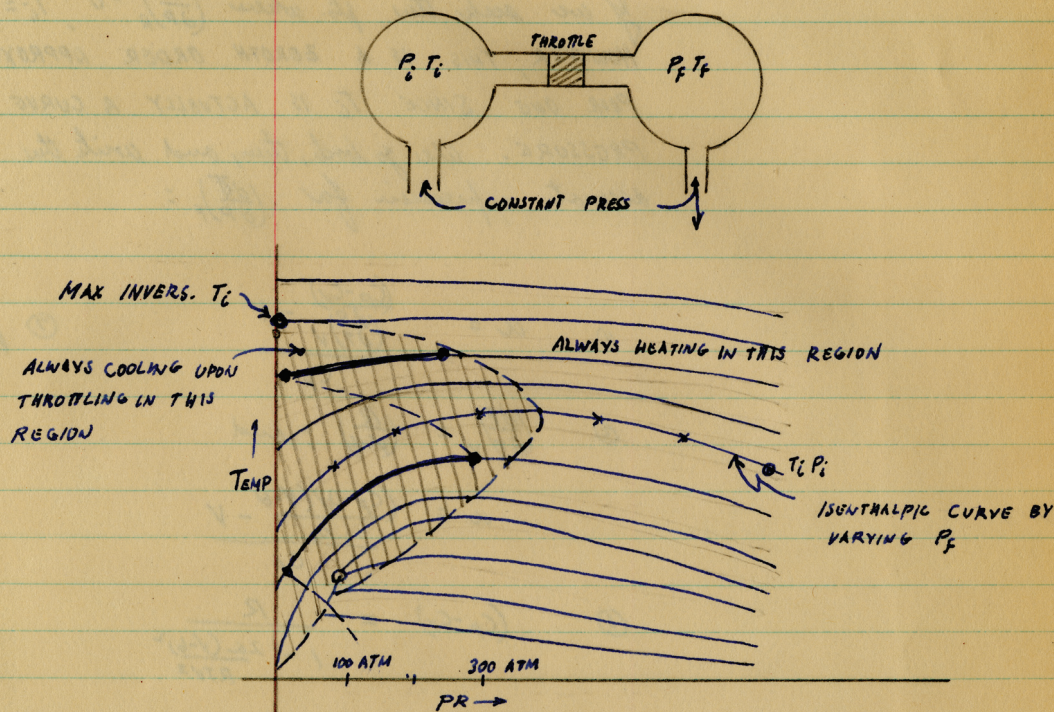 THROTTLE
Pi Ti
Pf Tf
CONSTANT PRESS
MAX INVERS. Ti
ALWAYS COOLING UPON
THROTTLING IN THIS
REGION
ALWAYS HEATING IN THIS REGION
TEMP
Ti Pi
ISENTHALPIC CURVE BY
VARYING Pf
100 ATM
300 ATM
PR →